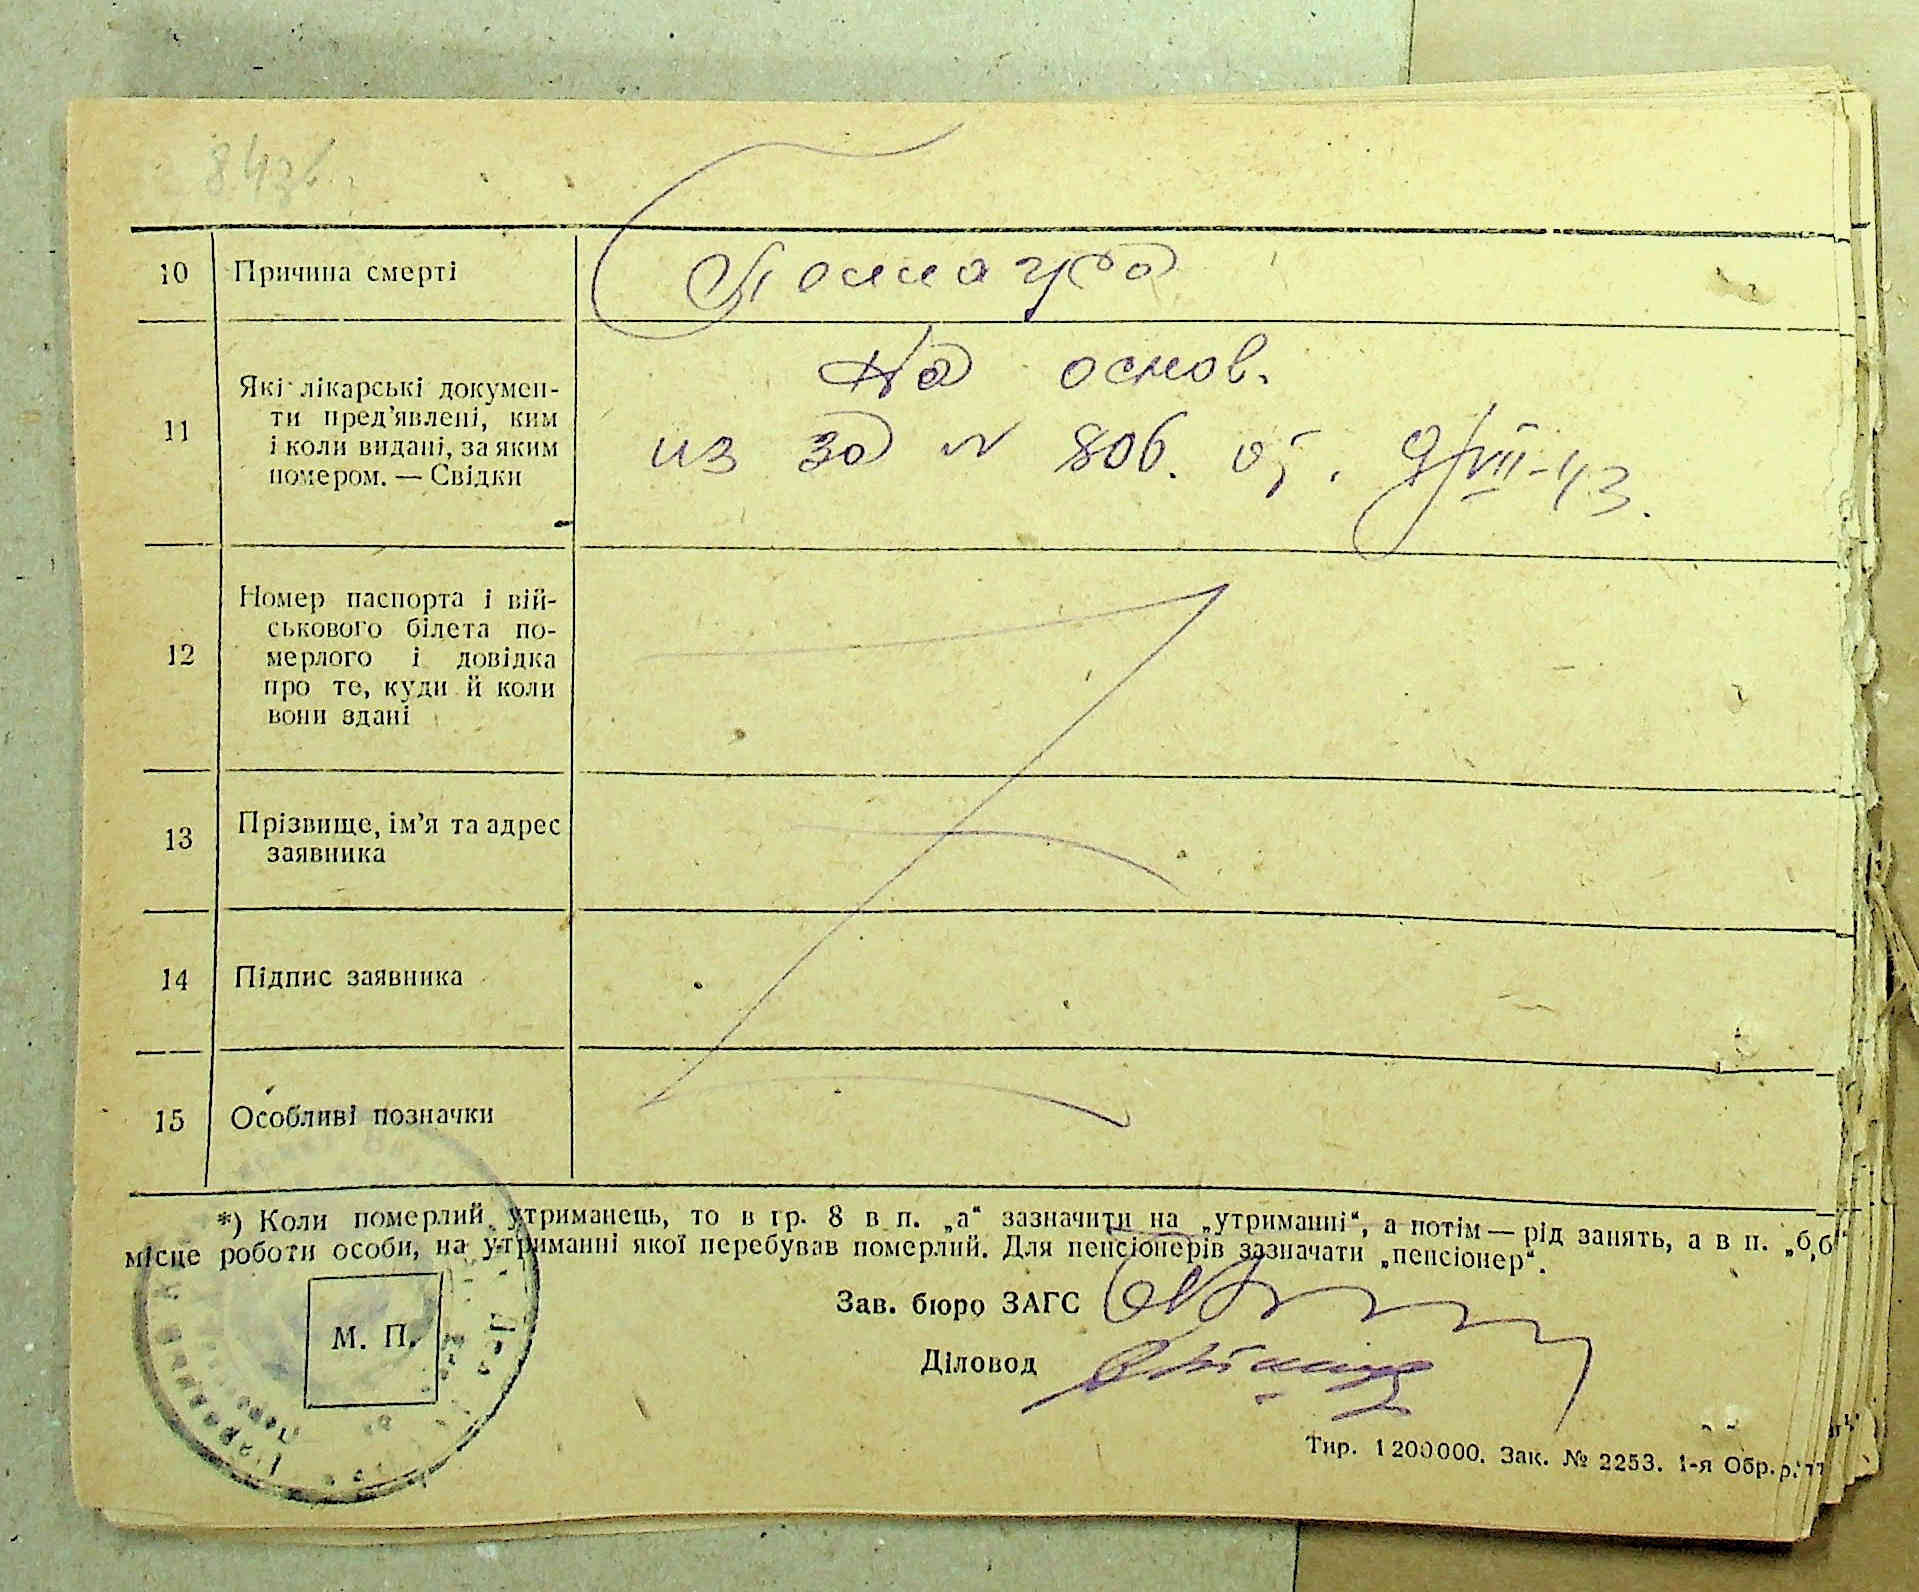 843б.
10 Причина смерті
11 Які лікарські докумен-
ти пред'явлені, ким
і коли видані, за яким
номером. — Свідки
На основ.
из за № 806. от. 9/VII-43.
12 Номер паспорта і вій-
ськового білета по-
мерлого і довідка
про те, куди й коли
вони здані
13 Прізвище, ім'я та адрес
заявника
14 Підпис заявника
15 Особливі позначки
*) Коли померлий утриманець, то в гр. 8 в п. „а“ зазначити на „утриманні“, а потім — рід занять, а в п. „б“
місце роботи особи, на утриманні якої перебував померлий. Для пенсіонерів зазначати „пенсіонер“.
Зав. бюро ЗАГС
М. П.
Діловод
Тир. 1200000. Зак. № 2253. 1-я Обр.